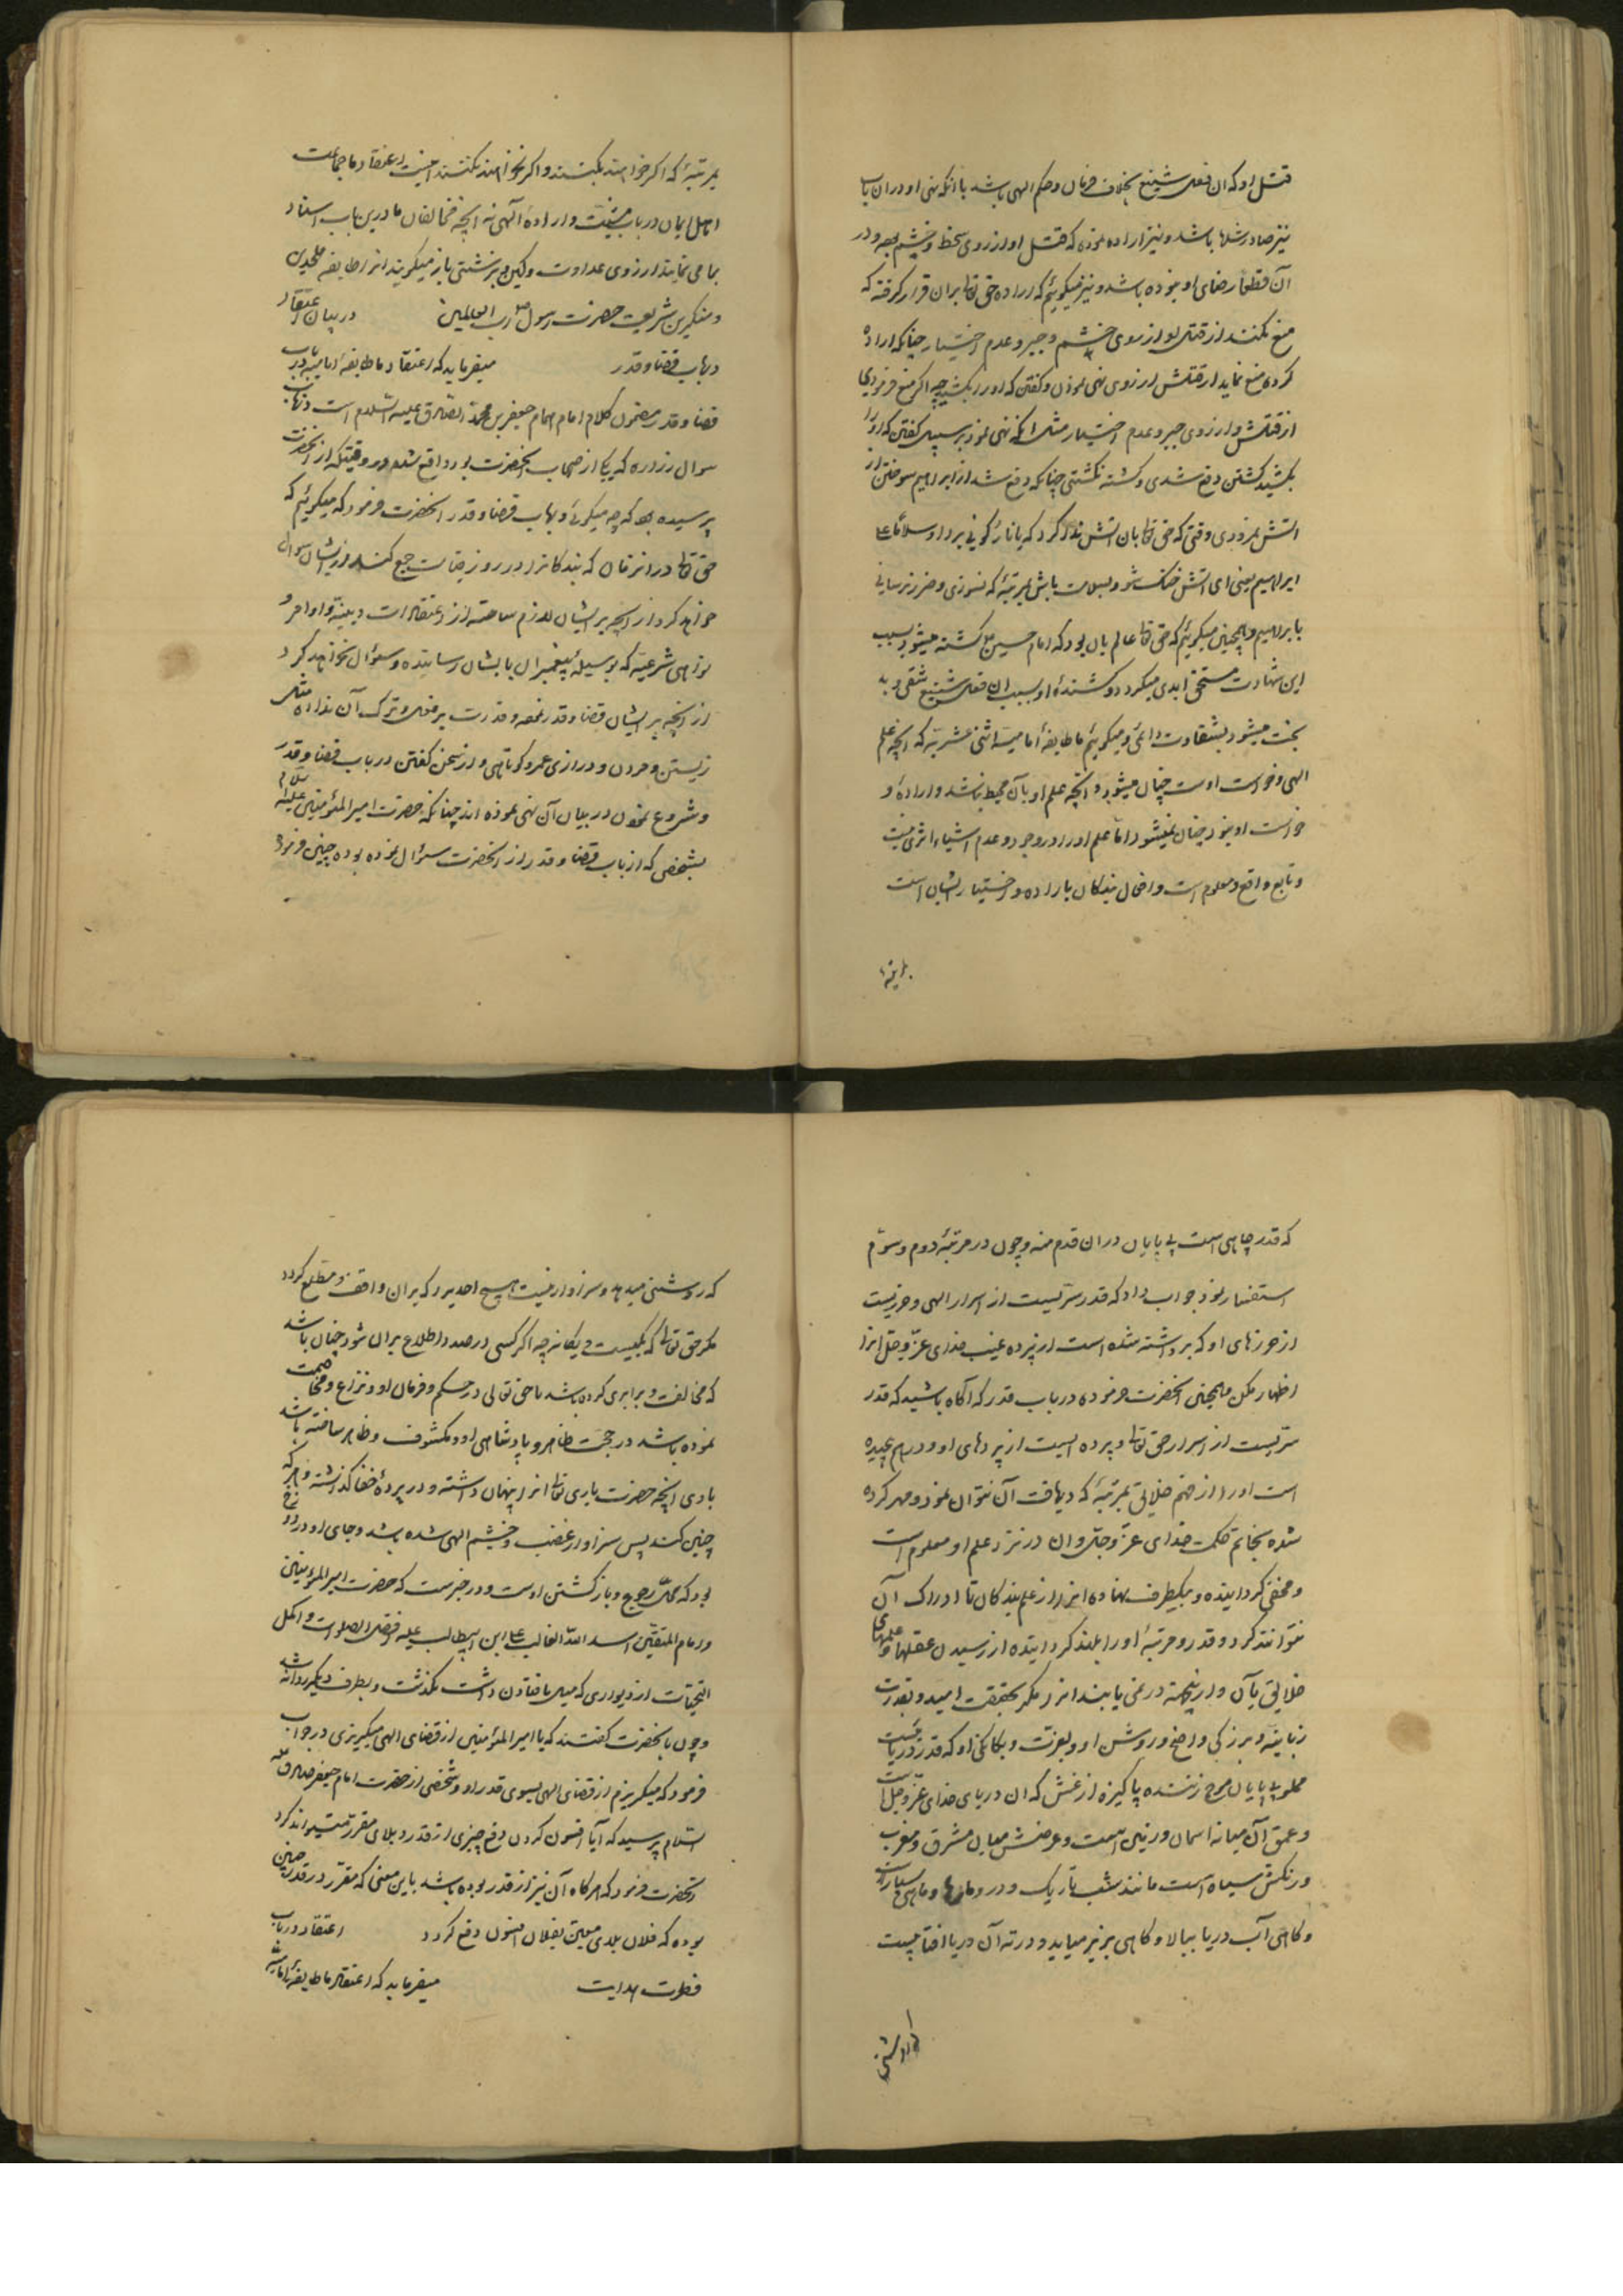 قتل او که ان فعل شنیع بخلاف فرمان و حکم الهی باشد با آنکه نهی او در ان باب
نیز صادر شده باشد و نیز اراده نموده که قتل او از روی سخط و خشم بوده و در
آن قطعا رضای او نبوده باشد و نیز میگوییم که اراده حق تعا بران قرار گرفته که
منع نکنند از قتل او از روی خشم و جبر و عدم اختیار چنانکه اراده
کرده منع نماید از قتلش از روی نهی نمودن و گفتن که اورا نکشید چه اگر منع فرمودی
از قتلش و از روی جبر و عدم اختیار مثل انکه نهی نمود بر سبیل گفتن که اورا
نکشید کشتن دفع شدی و کشته نگشتی چنانکه دفع شد از ابراهیم سوختن از
اتش نمرودی وقتی که حق تعا بان اتش ندا کرد که یا نار کونی بردا و سلاما علی
ابراهیم یعنی ای اتش خنک شو و بسلامت باش بمرتبهٔ که نسوزی و ضرر نرسانی
بابراهیم و همچنین میگوییم که حق تعا عالم بان بود که امام حسین ع کشته میشود بسبب
این شهادت مستحق ابدی میگردد و کشندهٔ او بسبب ان فعل شنیع شقی و بد
بخت میشود بشقاوت دائمی و میگوییم ما طایفهٔ امامیه اثنی عشریه که انچه علم
الهی و خواست اوست چنان میشود و انچه علم او بآن محیط نباشد و اراده و
خواست او نبود چنان نمیشود اما علم اورا در وجود و عدم اشیاء اثری نیست
و تابع واقع و معلوم است و افعال بندکان باراده و اختیار ایشان است
بمرتبهٔ که اگر خواهند بکنند و اگر نخواهند نکنند اینست اعتقاد ما جماعت
اهل ایمان در باب مشیت و ارادهٔ الهی نه انچه مخالفان ما درین باب اسناد
بما می نمایند از روی عداوت و کین و بر زشتی باز میگویند انرا طایفه ملحدین
و منکرین شریعت حضرت رسول رب العالمین در بیان اعتقاد
در باب قضا و قدر میفرماید که اعتقاد ما طایفهٔ امامیه در باب
قضا و قدر مضمون کلام امام همام جعفر بن محمد الصادق علیه السلام است در جواب
سوال زراره که یکی از صحاب انحضرت بود واقع شده در وقتیکه از انحضرت
پرسیده بود که چه میگوئی در باب قضا و قدر انحضرت فرمود که میگوئیم که
حق تعا در انزمان که بندکانرا در روز قیامت جمع کند از ایشان سوال
خواهد کرد از انچه بر ایشان لازم ساخته از اعتقادات دینیه و اوامر و
نواهی شرعیه که بوسیله پیغمبران بایشان رسانیده و سوال نخواهد کرد
از انچه بر ایشان قضا و قدر نموده و قدرت بر فعل و ترک آن نداده مثل
زیستن و مردن و درازی عمر و کوتاهی و از سخن گفتن در باب قضا و قدر
و شروع نمودن در بیان آن نهی نموده اند چنانکه حضرت امیر المومنین علیه السلام
بشخصی که از باب قضا و قدر از انحضرت سوال نموده بوده چنین فرمود
که قدر چاهی است بی پایان دران قدم منه و چون در مرتبهٔ دوم و سوم
استفسار نمود جواب داد که قدر سریست از اسرار الهی و حرزیست
از حرزهای او که برداشته شده است از پرده غیب خدای عز و جل انرا
اظهار مکن و همچنین انحضرت فرموده در باب قدر که آکاه باشید که قدر
سریست از اسرار حق تعا و پرده ایست از پردهای او و درهم پیچیده
است اورا از فهم خلایق بمرتبهٔ که دریافت آن نتوان نمود و مهر کرده
شده بخاتم حکمت خدای عز و جل و ان در نزد علم او معلوم است
و مخفی گردانیده و بیکطرف نهاده انرا از علم بندکان تا ادراک آن
نتوانند کرد و قدر و مرتبهٔ اورا بلند کردانیده از رسیدن عقلها و علمهای
خلایق بآن و ازینجهته در نمی یابند انرا مکر بحقیقت و بقدرت
ربانیه و بزرکی واضح و روشن او و بعزت و یکانکی او که قدر دریائیست
مملو بی پایان موج زننده پاکیزه از غش که ان دریای خدای عز و جل است
و عمق آن میانه اسمان و زمین است و عرضش میان مشرق و مغرب
و رنکش سیاه است مانند شب تاریک و در و مارها و ماهی بسیار است
و کاهی آب دریا ببالا و کاهی بزیر میاید و در ته آن دریا افتابیست
که روشنی میدهد و سزاوار نیست هیچ احدیرا که بران واقف و مطلع کردد
مکر حق تعا که یکیست و یکانه چه اکر کسی در صدد اطلاع بران شود چنان باشد
که مخالفت و برابری کرده باشد با حق تعالی در حکم و فرمان او و نزاع و مخاصمت
نموده باشد در حجت ظاهر و پادشاهی او و مکشوف و ظاهر ساخته باشد
بادی انچه حضرت باری تعا انرا پنهان داشته و در پردهٔ خفا گذاشته و هر که
چنین کند پس سزاوار غضب و خشم الهی شده باشد و جای او دوزخ
بود که محل رجوع و بازکشتن اوست و در خبرست که حضرت امیر المومنین
و امام المتقین اسد الله الغالب علی ابن ابیطالب علیه افضل الصلوات و اکمل
التحیات از دیواری که میل بافتادن داشت بگذشت و بطرف دیکر روانه شد
و چون بانحضرت کفتند که یا امیر المؤمنین از قضای الهی میگریزی در جواب
فرمود که میگریزم از قضای الهی بسوی قدر او و شخصی از حضرت امام جعفر صادق علیه
السلام پرسید که آیا افسون کردن دفع چیزی از قدر و بلای مقرر میتواند کرد
انحضرت فرمود که هرکاه آن نیز از قدر بوده باشد باین معنی که مقرر در قدر چنین
بوده که فلان بلای معین بفلان افسون دفع کردد اعتقاد در باب
فطرت هدایت میفرماید که اعتقاد ما طایفهٔ امامیه